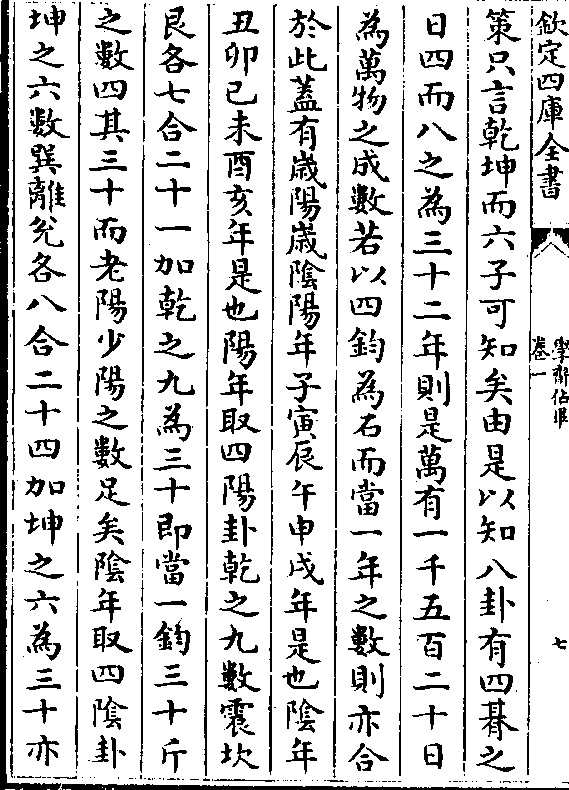 欽定四庫全書
學齋佔畢
卷一
七
策只言乾坤而六子可知矣由是以知八卦有四朞之
日四而八之為三十二年則是萬有一千五百二十日
為萬物之成數若以四鈞為石而當一年之數則亦合
於此蓋有歲陽歲陰陽年子寅辰午申戌年是也陰年
丑卯巳未酉亥年是也陽年取四陽卦乾之九數震坎
艮各七合二十一加乾之九為三十即當一鈞三十斤
之數四其三十而老陽少陽之數足矣陰年取四陰卦
坤之六數巽離兊各八合二十四加坤之六為三十亦